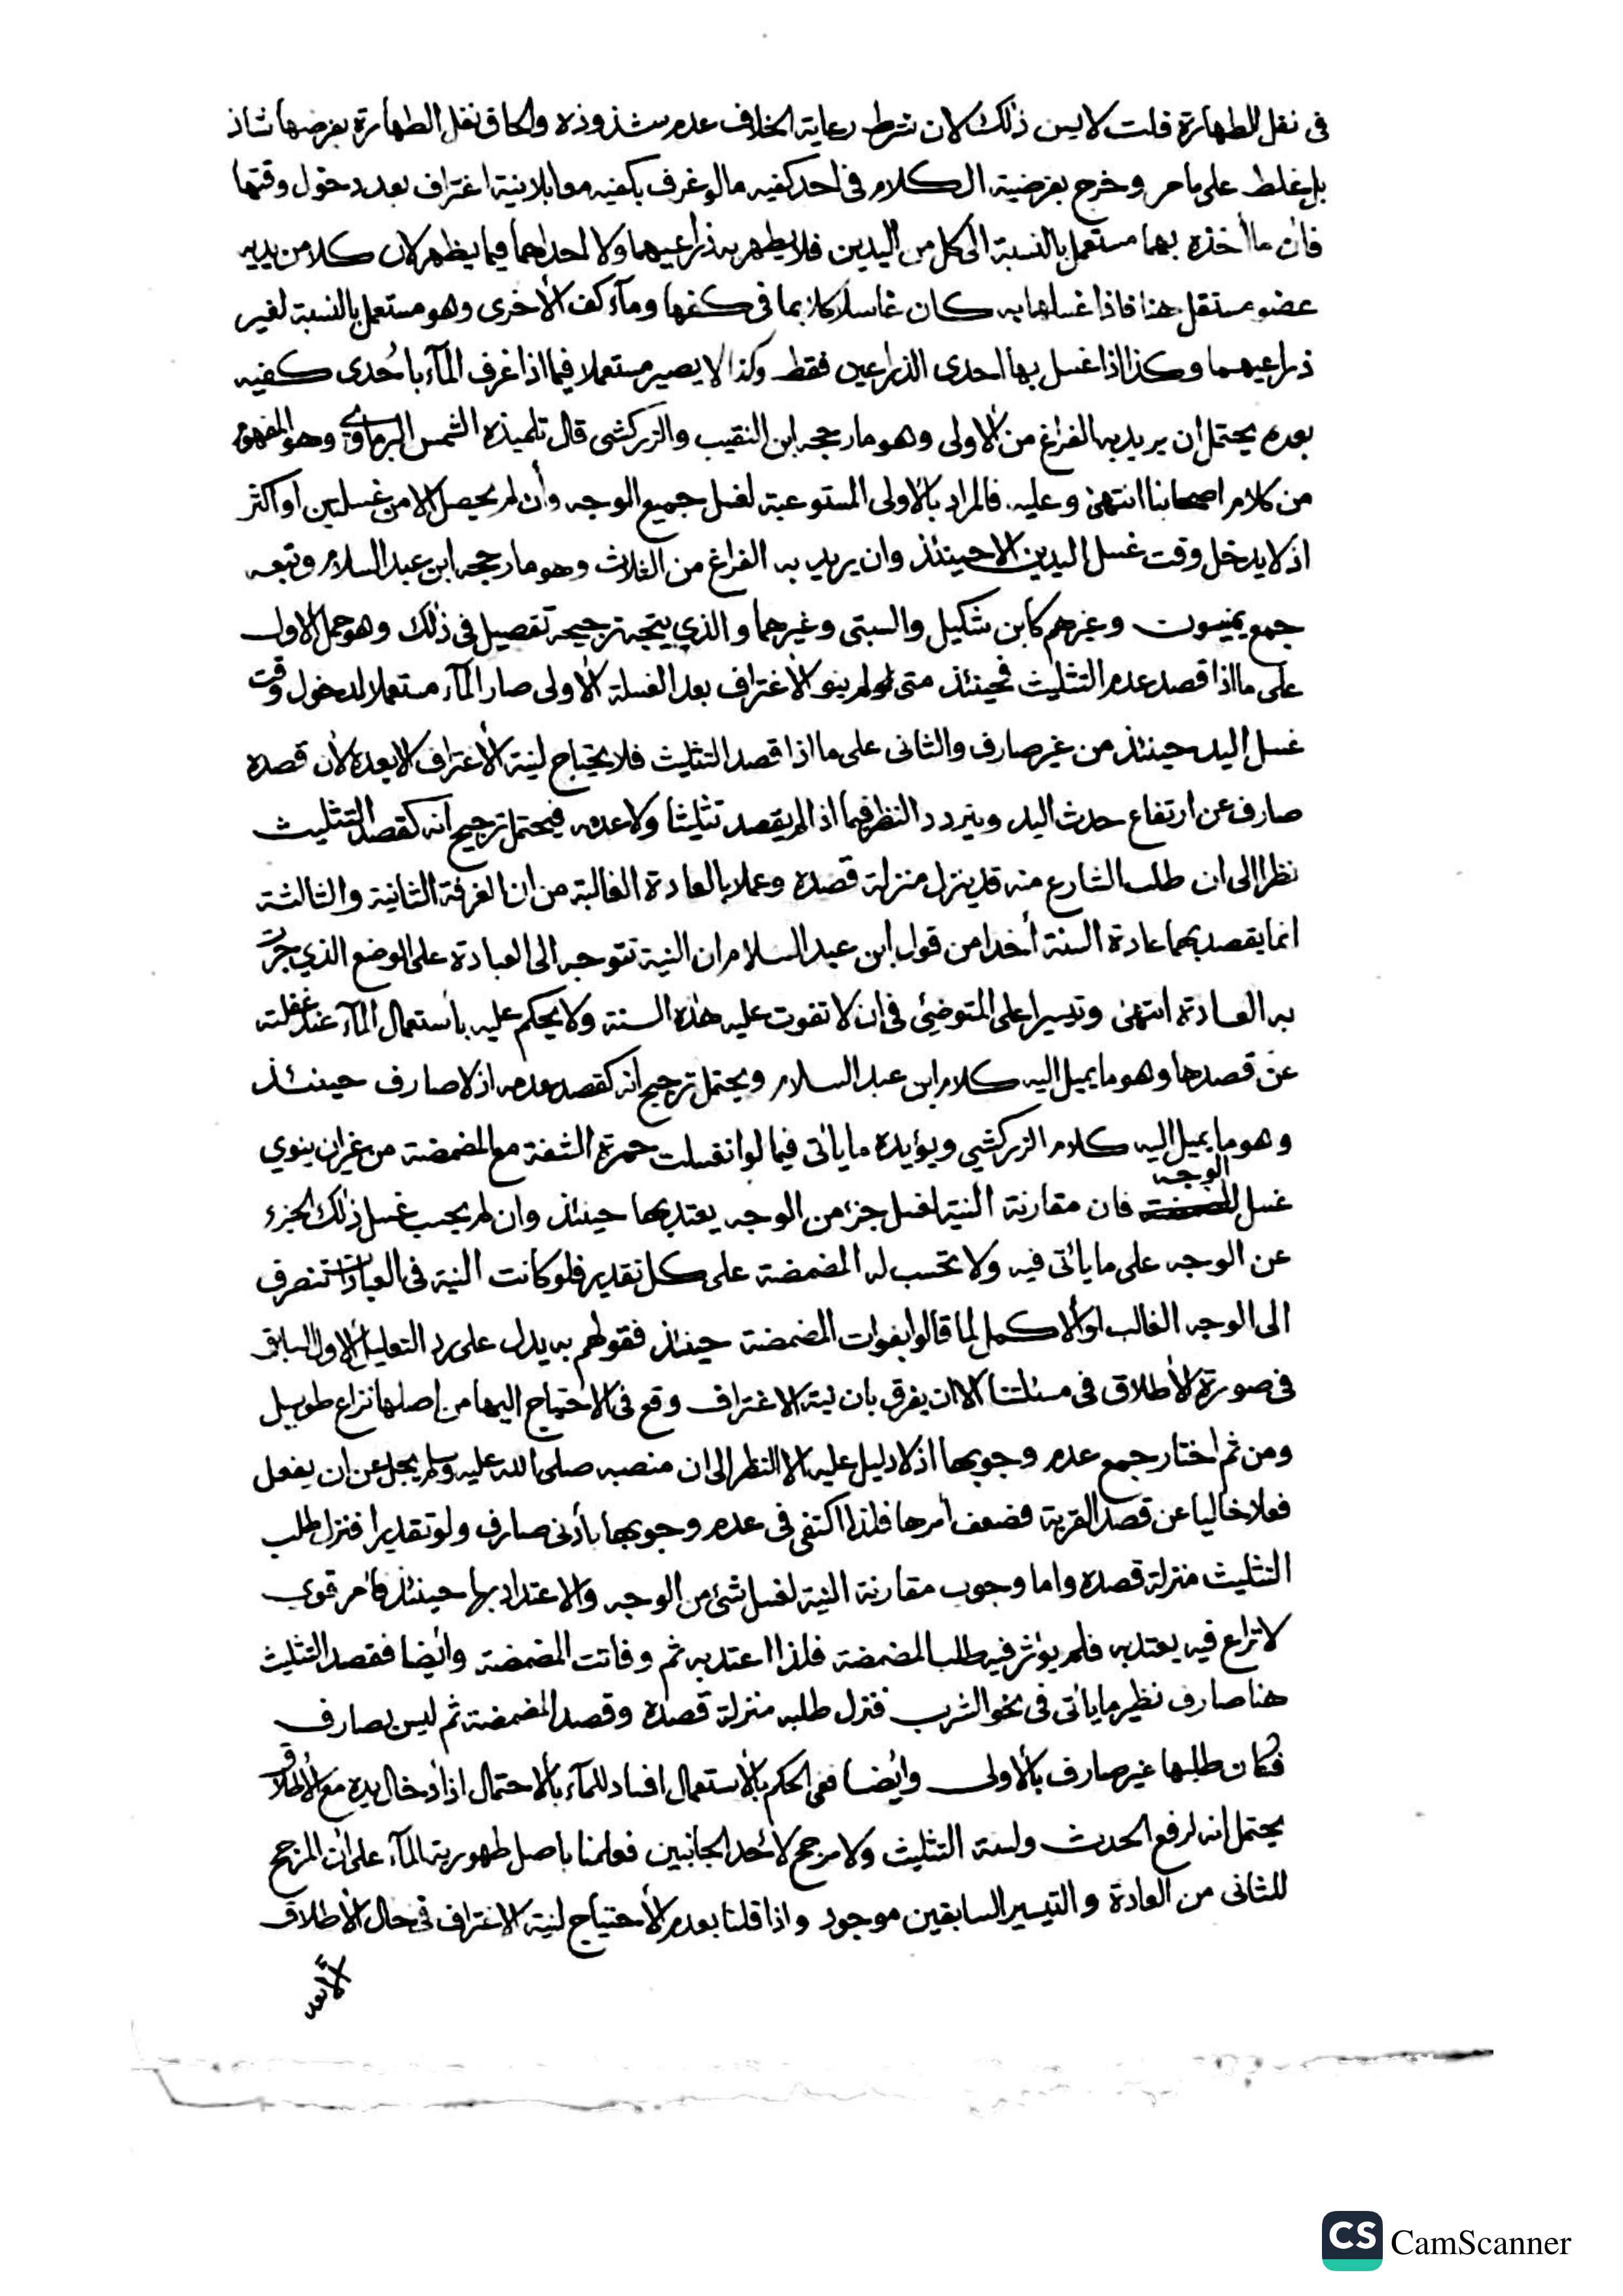 فى نفل الطهارة قلت لا يسن ذلك لان شرط رعاية الخلاف عدم شذوذه والحاق نفل الطهارة بفرضها شاذ
بل غلط على ما مر وخرج بفرضية الكلام فى احد كفيه ما لو غرف بكفيه معا بلا نية اغتراف بعد دخول وقتها
فان ما أخذه بهما مستعمل بالنسبة الى كل من اليدين فلا يطهر به ذراعيهما ولا احداهما فيما يظهر لان كلا من يديه
عضو مستقل هنا فاذا غسلها به كان غاسلا كلا بما فى كفها ومآء كف الأخرى وهو مستعمل بالنسبة لغير
ذراعيهما وكذا اذا غسل بها احدى الذراعين فقط وكذا لا يصير مستعملا فيما اذا غرف المآء باحدى كفيه
بعده يحتمل ان يريد به الفراغ من الاولى وهو ما رجحه ابن النقيب والزركشى قال تلميذه الشمس البرماوي وهو المفهوم
من كلام اصحابنا انتهى وعليه فالمراد بالاولى المستوعبة لغسل جميع الوجه وأن لم يحصل الا من غسلتين او اكثر
اذ لا يدخل وقت غسل اليدين الا حينئذ وان يريد به الفراغ من الثلاث وهو ما رجحه ابن عبد السلام وتبعه
جمع يمنيون وغيرهم كأبن شكيل والسبتى وغيرهما والذي يتجه ترجيحه تفصيل فى ذلك وهو حمل الاول
على ما اذا قصد عدم التثليث فحينئذ متى لم ينو الأغتراف بعد الغسلة الأولى صار المآء مستعملا لدخول وقت
غسل اليد حينئذ من غير صارف والثانى على ما اذا قصد التثليث فلا يحتاج لنية الأغتراف الا بعده لأن قصده
صارف عن ارتفاع حدث اليد ويتردد النظر فيما اذا لم يقصد تثليثا ولا عدمه فيحتمل ترجيح انه كقصد التثليث
نظرا الى ان طلب الشارع منه قد ينزل منزلة قصده وعملا بالعادة الغالبة من ان الغرفة الثانية والثالثة
انما يقصد بهما عادة السنة أخذا من قول ابن عبد السلام ان النية تتوجه الى العبادة على الوضع الذي جرت
به العادة انتهى وتيسيرا على المتوضئ فى ان لا تفوت عليه هذه السنة ولا يحكم عليه بأستعمال المآء عند غفلته
عن قصدها وهو ما يميل اليه كلام ابن عبد السلام ويحتمل ترجيح انه كقصد عدمه اذ لا صارف حينئذ
وهو ما يميل اليه كلام الزركشي ويؤيده ما يأتى فيما لو انغسلت حمرة الشفة مع المضمضة من غير ان ينوي
غسل الوجه فان مقارنة النية لغسل جزء من الوجه يعتد بها حينئذ وان لم يجب غسل ذلك الجزء
عن الوجه على ما يأتى فيه ولا تحسب له المضمضة على كل تقدير فلو كانت النية فى العبادات تنصرف
الى الوجه الغالب او الاكمل لما قالوا بفوات المضمضة حينئذ فقولهم به يدل على رد التعليل الاول السابق
فى صورة الأطلاق فى مسئلتنا الا ان يفرق بان نية الاغتراف وقع فى الاحتياج اليها من اصلها نزاع طويل
ومن ثم اختار جمع عدم وجوبها اذ لا دليل عليه الا النظر الى ان منصبه صلى الله عليه وسلم يجل عن ان يفعل
فعلا خاليا عن قصد القربة فضعف أمرها فلذا اكتفى فى عدم وجوبها بأدنى صارف ولو تقديرا فنزل طلب
التثليث منزلة قصده واما وجوب مقارنة النية لغسل شئ من الوجه والاعتداد بها حينئذ فأمر قوي
لا نزاع فيه يعتد به فلم يؤثر فيه طلب المضمضة فلذا اعتد به ثم وفاتت المضمضة وأيضا فقصد التثليث
هنا صارف نظير ما يأتى فى نحو الشرب فنزل طلبه منزلة قصده وقصد المضمضة ثم ليس بصارف
فكان طلبها غير صارف بالأولى وأيضا ففى الحكم بالأستعمال افساد للمآء بالأحتمال اذ ادخال يده مع الأطلاق
يحتمل انه لرفع الحدث ولسنة التثليث ولا مرجح لأحد الجانبين فعلمنا باصل طهورية المآء على ان المرجح
للثانى من العادة والتيسير السابقين موجود واذا قلنا بعدم الأحتياج لنية الاغتراف فى حال الأطلاق
الا بعد
CS CamScanner